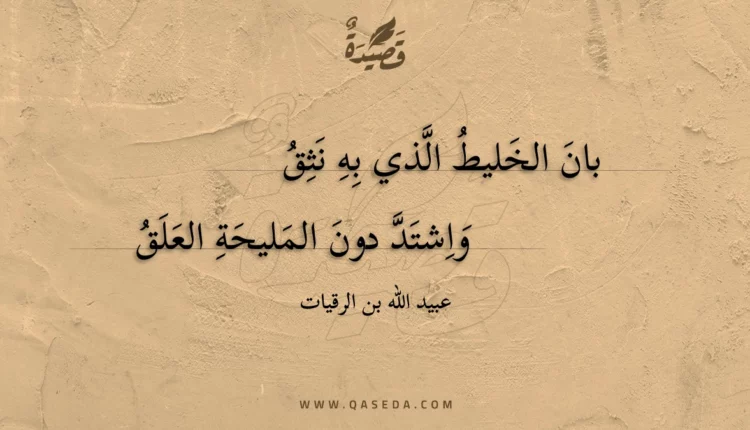 قَصِيدَةٌ
بانَ الخَليطُ الَّذي بِهِ نَثِقُ
وَاِشتَدَّ دونَ المَليحَةِ العَلَقُ
عبيد الله بن الرقيات
WWW.QASEDA.COM